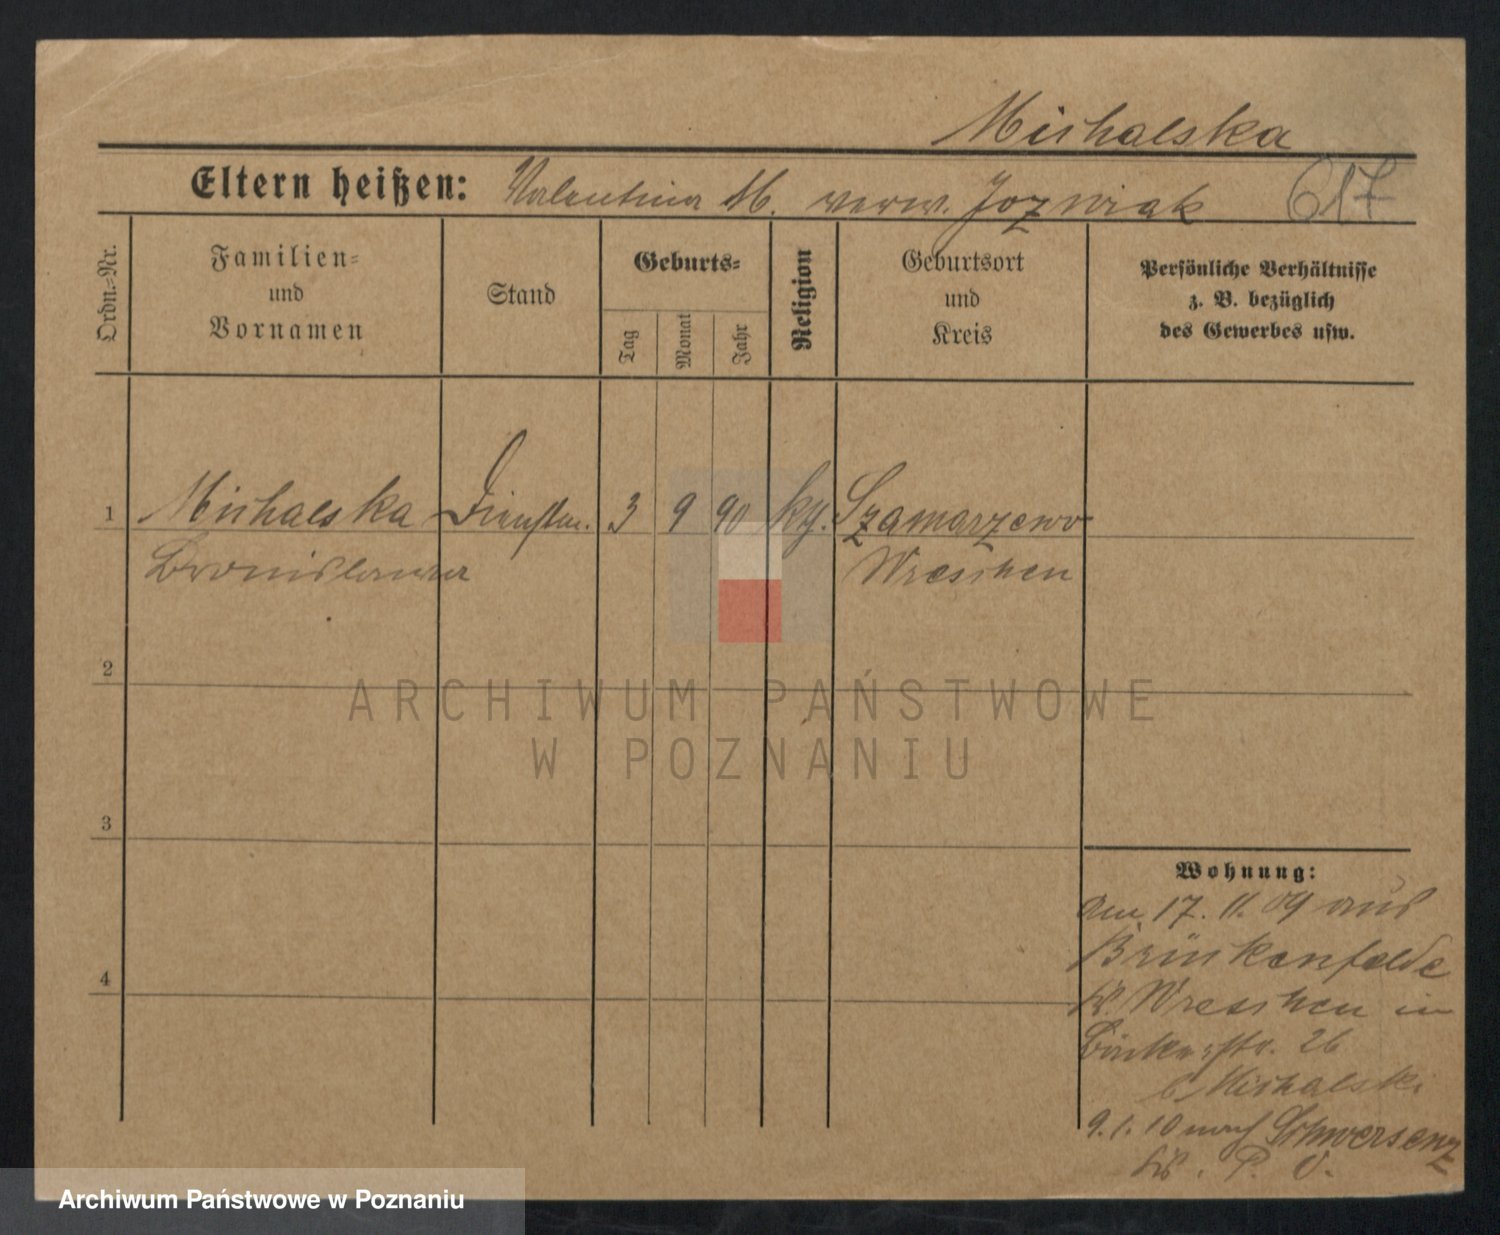 Michalska
Eltern heißen: Valentina M. verw. Jozwiak 617
Ordn.-Nr.
Familien-
und
Vornamen
Stand
Geburts-
Tag
Monat
Jahr
Religion
Geburtsort
und
Kreis
Persönliche Verhältnisse
z. B. bezüglich
des Gewerbes usw.
1 Michalska Dienstm. 3 9 90 kg. Szamarzewo
Bronislawa Wreschen
2
3
4
Wohnung:
am 17. 11. 09 aus
Brückenfelde
Kr. Wreschen in
Bäckerstr. 26
b Michalski
9. 1. 10 nach Schwersenz
Kr. P. O.
ARCHIWUM PAŃSTWOWE
W POZNANIU
Archiwum Państwowe w Poznaniu